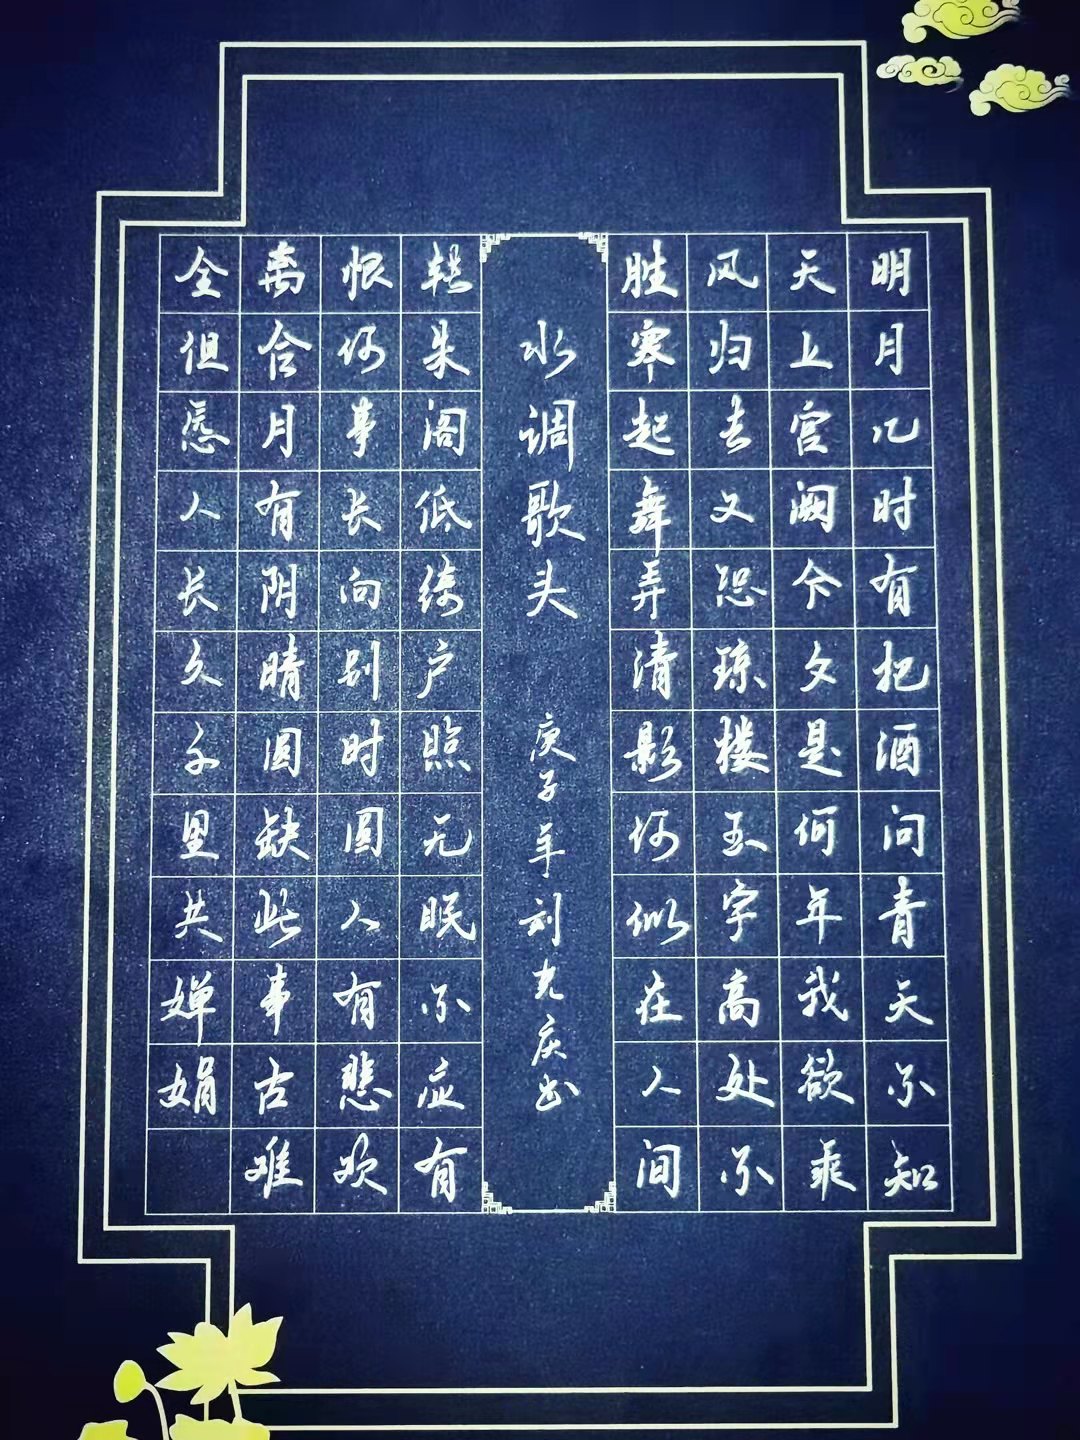 明月几时有把酒问青天不知
天上宫阙今夕是何年我欲乘
风归去又恐琼楼玉宇高处不
胜寒起舞弄清影何似在人间
水调歌头 庚子年刘光庆书
转朱阁低绮户照无眠不应有
恨何事长向别时圆人有悲欢
离合月有阴晴圆缺此事古难
全但愿人长久千里共婵娟